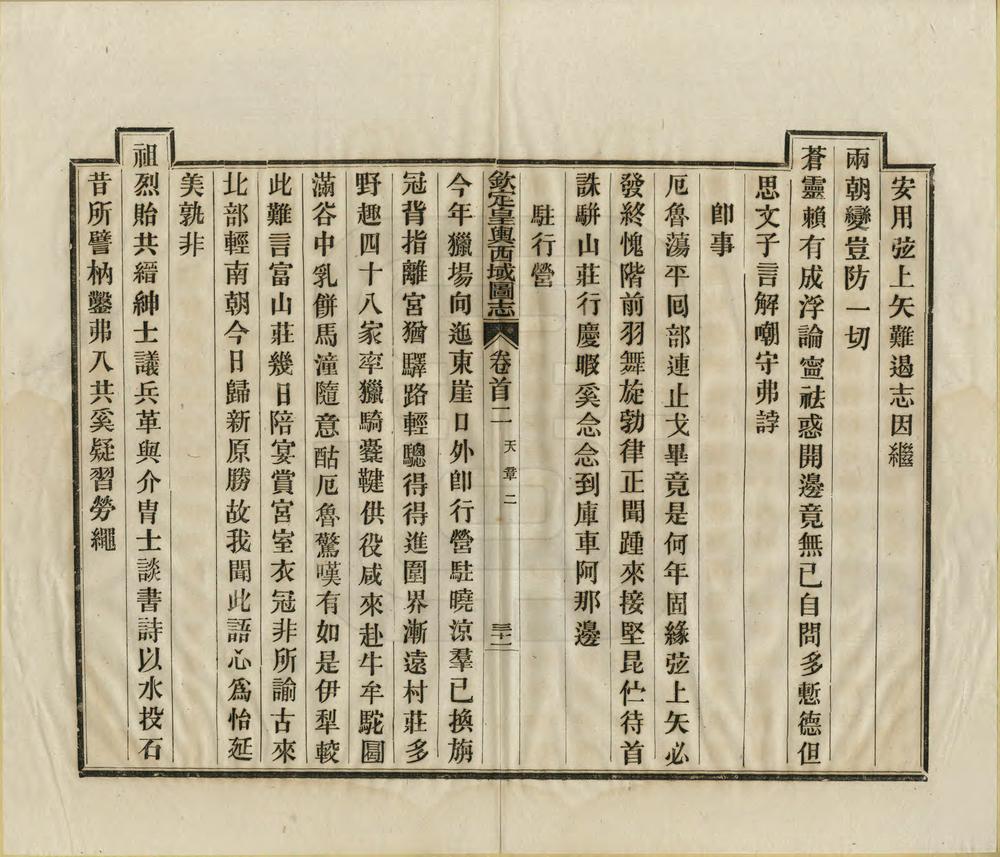 安用弦上矢難遏志因繼
兩朝變豈防一切
蒼靈賴有成浮論寧祛惑開邊竟無已自問多慙德但
思文子言解嘲守弗諄
卽事
厄魯蕩平囘部連止戈畢竟是何年固緣弦上矢必
發終愧階前羽舞旋勃律正聞踵來接堅昆伫待首
誅駢山莊行慶暇奚念念到庫車阿那邊
駐行營
欽定皇輿西域圖志 卷首二 天章二 三十一
今年獵場向迤東崖口外卽行營駐曉涼羣已換旃
冠背指離宮猶驛路輕驄得得進圍界漸遠村莊多
野趣四十八家率獵騎櫜鞬供役咸來赴牛牟駝圖
滿谷中乳餅馬湩隨意酤厄魯驚嘆有如是伊犁較
此難言富山莊幾日陪宴賞宮室衣冠非所諭古來
北部輕南朝今日歸新原勝故我聞此語心爲怡延
美孰非
祖烈貽共縉紳士議兵革與介冑士談書詩以水投石
昔所譬枘鑿弗入共奚疑習勞繩